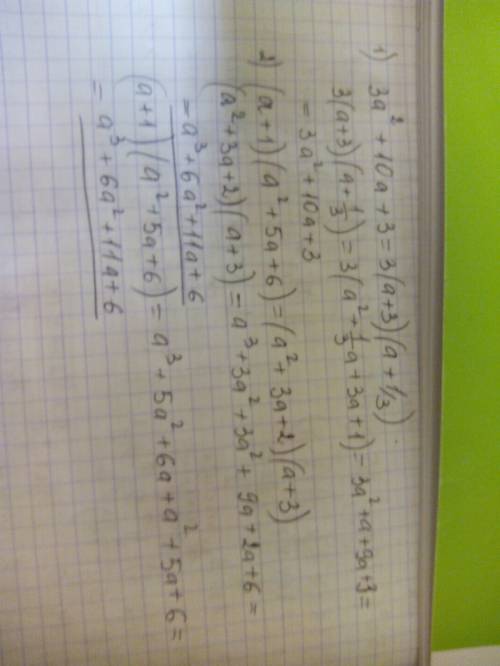 1) 3a² + 10a + 3 = 3(a+3)(a + 1/3).
3(a+3)(a+1/3) = 3(a² + 1/3a + 3a + 1) = 3a² + a + 9a + 3 =
= 3a² + 10a + 3
2) (a+1)(a² + 5a + 6) = (a² + 3a + 2)(a + 3)
(a² + 3a + 2)(a + 3) = a³ + 3a² + 3a² + 9a + 2a + 6 =
= a³ + 6a² + 11a + 6
(a+1)(a² + 5a + 6) = a³ + 5a² + 6a + a² + 5a + 6 =
= a³ + 6a² + 11a + 6